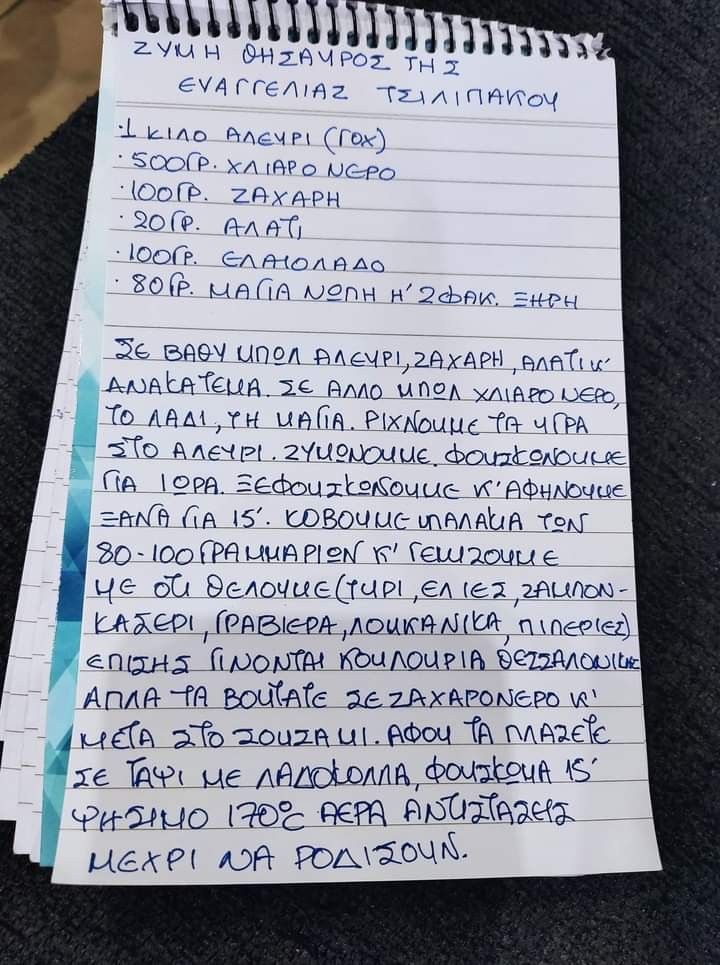 ΖΥΜΗ ΘΗΣΑΥΡΟΣ ΤΗΣ
ΕΥΑΓΓΕΛΙΑΣ ΤΣΙΛΙΠΑΚΟΥ
·1 ΚΙΛΟ ΑΛΕΥΡΙ (ΓΟΧ)
·500ΓΡ. ΧΛΙΑΡΟ ΝΕΡΟ
·100ΓΡ. ΖΑΧΑΡΗ
·20ΓΡ. ΑΛΑΤΙ
·100ΓΡ. ΕΛΑΙΟΛΑΔΟ
·80ΓΡ. ΜΑΓΙΑ ΝΩΠΗ Η' 2ΦΑΚ. ΞΗΡΗ
ΣΕ ΒΑΘΥ ΜΠΟΛ ΑΛΕΥΡΙ, ΖΑΧΑΡΗ, ΑΛΑΤΙ Κ'
ΑΝΑΚΑΤΕΜΑ. ΣΕ ΑΛΛΟ ΜΠΟΛ ΧΛΙΑΡΟ ΝΕΡΟ,
ΤΟ ΛΑΔΙ, ΤΗ ΜΑΓΙΑ. ΡΙΧΝΟΥΜΕ ΤΑ ΥΓΡΑ
ΣΤΟ ΑΛΕΥΡΙ. ΖΥΜΩΝΟΥΜΕ. ΦΟΥΣΚΩΝΟΥΜΕ
ΓΙΑ 1ΩΡΑ. ΞΕΦΟΥΣΚΩΝΟΥΜΕ Κ' ΑΦΗΝΟΥΜΕ
ΞΑΝΑ ΓΙΑ 15'. ΚΟΒΟΥΜΕ ΜΠΑΛΑΚΙΑ ΤΩΝ
80-100 ΓΡΑΜΜΑΡΙΩΝ Κ' ΓΕΜΙΖΟΥΜΕ
ΜΕ ΟΤΙ ΘΕΛΟΥΜΕ (ΤΥΡΙ, ΕΛΙΕΣ, ΖΑΜΠΟΝ-
ΚΑΣΕΡΙ, ΓΡΑΒΙΕΡΑ, ΛΟΥΚΑΝΙΚΑ, ΠΙΠΕΡΙΕΣ)
ΕΠΙΣΗΣ ΓΙΝΟΝΤΑΙ ΚΟΥΛΟΥΡΙΑ ΘΕΣΣΑΛΟΝΙΚΗΣ
ΑΠΛΑ ΤΑ ΒΟΥΤΑΤΕ ΣΕ ΖΑΧΑΡΟΝΕΡΟ Κ'
ΜΕΤΑ ΣΤΟ ΣΟΥΣΑΜΙ. ΑΦΟΥ ΤΑ ΠΛΑΣΕΤΕ
ΣΕ ΤΑΨΙ ΜΕ ΛΑΔΟΚΟΛΛΑ, ΦΟΥΣΚΩΜΑ 15'
ΨΗΣΙΜΟ 170°C ΑΕΡΑ ΑΝΤΙΣΤΑΣΕΙΣ
ΜΕΧΡΙ ΝΑ ΡΟΔΙΣΟΥΝ.